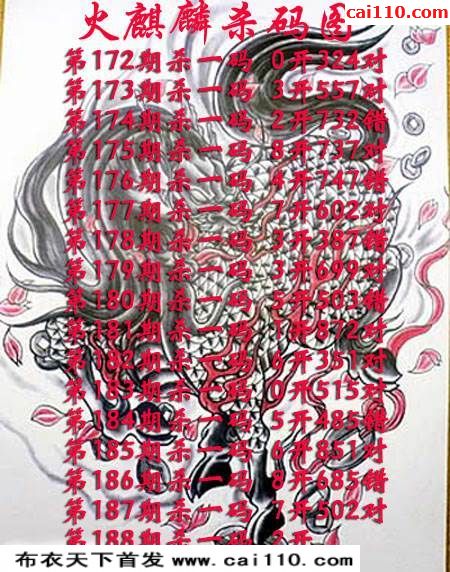 cai110.com
火麒麟杀码图
第172期杀一码 0开324对
第173期杀一码 3开557对
第174期杀一码 2开732错
第175期杀一码 8开737对
第176期杀一码 4开747错
第177期杀一码 7开602对
第178期杀一码 3开387错
第179期杀一码 3开699对
第180期杀一码 5开503错
第181期杀一码 1开872对
第182期杀一码 6开351对
第183期杀一码 0开515对
第184期杀一码 5开485错
第185期杀一码 6开851对
第186期杀一码 8开685错
第187期杀一码 7开502对
第188期杀一码 2开
布衣天下首发 www.cai110.com